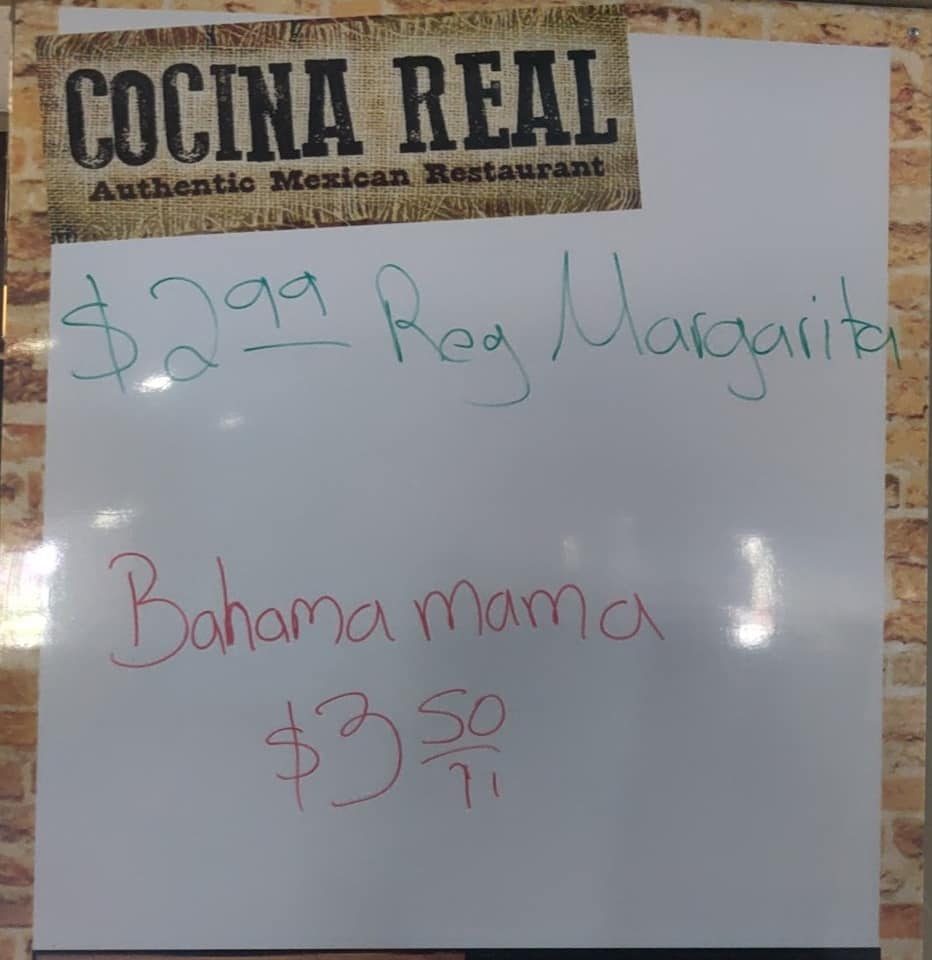 COCINA REAL
Authentic Mexican Restaurant
$2.99 Reg Margarita
Bahama mama
$3.50